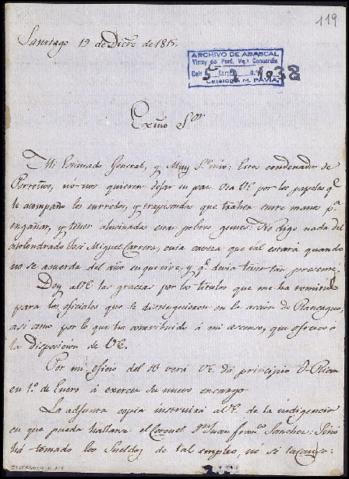 119
Santiago 19 de Dicre de 1815.
ARCHIVO DE ABASCAL
Virrey del Perú, Mqs Concordia
5 2 1038
Exmo Sor
Mi Estimado General, y Muy Sr mio: Esta condenada de
Porteños, no nos quieren dejar en paz. Vea VE. por los papeles qe
le acompaño los enredos, y trapisondas que trahen entre manos pa
engañar, y tener alucinadas estas pobres gentes. No digo nada del
atolondrado José Miguel Carrera; cuia caveza que tal estará quando
no se acuerda del año en que vive, y qe devia tener tan presente.
Doy a VE. las gracias por los titulos que me ha remitido
para los oficiales que se distinguieron en la accion de Rancagua,
asi como por lo que ha contribuido á mi ascenso, que ofrezco á
la disposicion de VE.
Por mi oficio del 18 verá VE. dá principio D.
en 1.º de Enero á exercer su nuevo encargo.
La adjunta copia instruirá a VE. de la indigencia
en que puede hallarse el Coronel Dn Juan Franco Sanchez: Sino
há tomado los sueldos de tal empleo, no sé